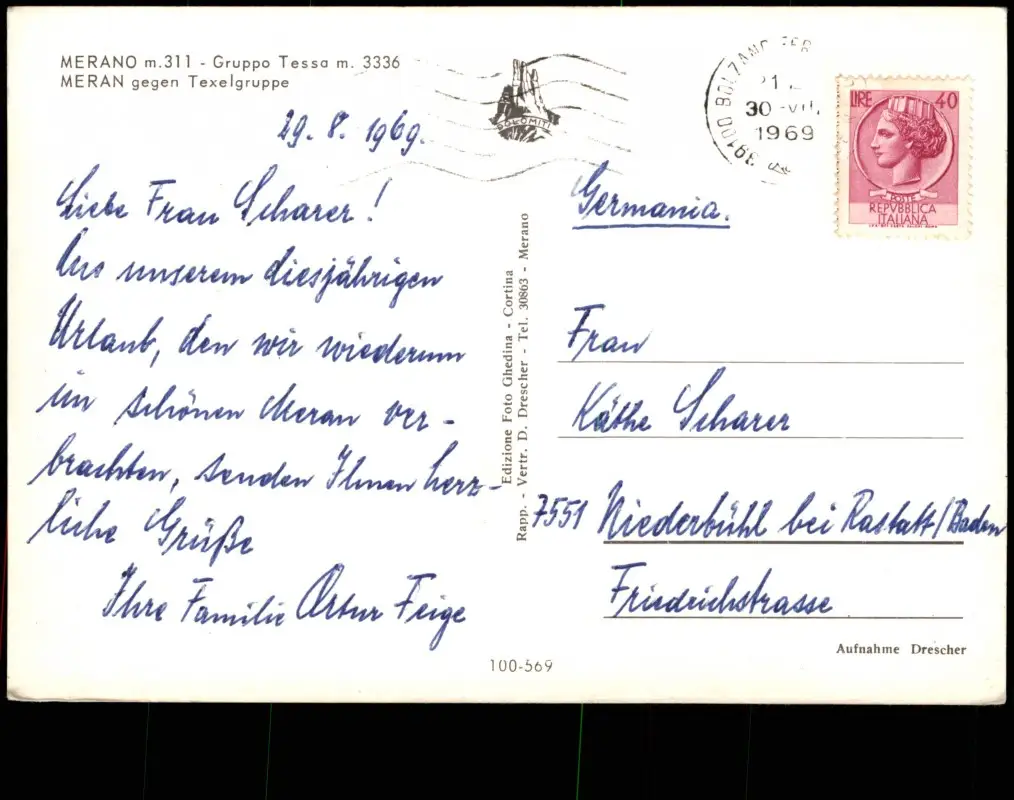 MERANO m.311 - Gruppo Tessa m. 3336
MERAN gegen Texelgruppe
29. 8. 1969.
Liebe Frau Scharer!
Aus unserem diesjährigen
Urlaub, den wir wiederum
im schönen Meran ver-
brachten, senden Ihnen herz-
liche Grüße
Ihre Familie Artur Feige
DOLOMITI
39100 BOLZANO FER
30 -VII.
1969
LIRE 40
POSTE
REPVBBLICA
ITALIANA
Germania.
Edizione Foto Ghedina - Cortina
Rapp. - Vertr. D. Drescher - Tel. 30863 - Merano
Frau
Käthe Scharer
7551 Niederbühl bei Rastatt/Baden
Friedrichstrasse
Aufnahme Drescher
100-569